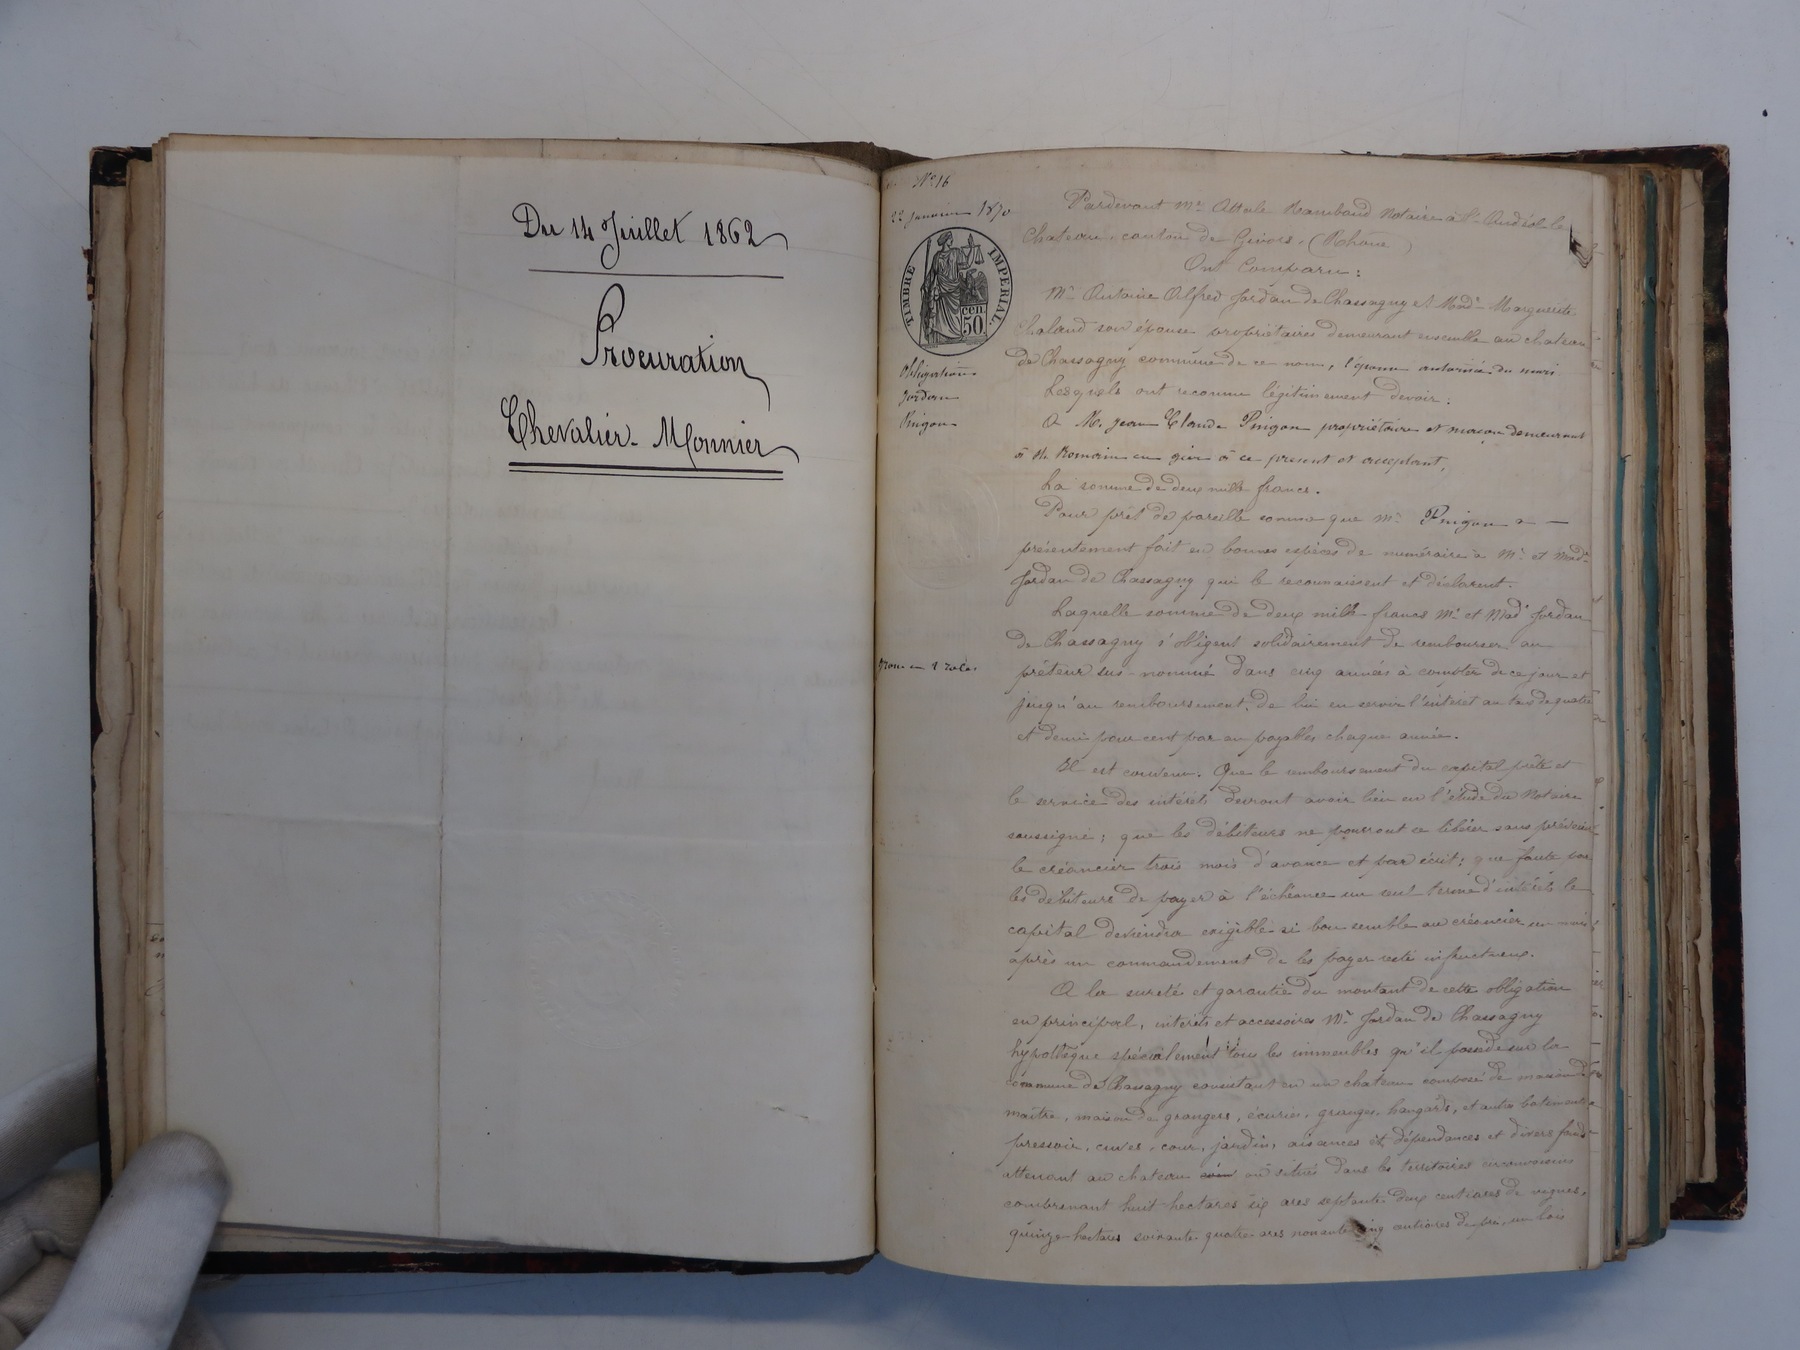 Du 14 Juillet 1862
Procuration
Chevalier-Monnier
N° 16
22 janvier 1870
TIMBRE IMPERIAL.
cen.
50.
Obligation
Jordan
Pingon
Pardevant Me Attale Rambaud Notaire à St Andéol-le
Chateau, canton de Givors, (Rhône)
Ont Comparu:
Mr Antoine Alfred Jordan de Chassagny et Made Marguerite
Chaland son épouse propriétaires demeurant ensemble au chateau
de Chassagny commune de ce nom, l'épouse autorisée du mari
Lesquels ont reconnu légitimement devoir:
A M. Jean Claude Pingon propriétaire et maçon demeurant
à St Romain en gier à ce présent et acceptant,
La somme de deux mille francs.
Pour prêt de pareille somme que Mr Pingon a —
présentement fait en bonnes espèces de numéraire à Mr et Made
Jordan de Chassagny qui le reconnaissent et déclarent.
Laquelle somme de deux mille francs Mr et Made Jordan
de Chassagny s'obligent solidairement de rembourser au
prêteur sus-nommé dans cinq années à compter de ce jour et
jusqu'au remboursement, de lui en servir l'intérêt au taux de quatre
et demi pour cent par an payables chaque année.
Il est convenu. Que le remboursement du capital prêté et
le service des intérêts devront avoir lieu en l'étude du Notaire
soussigné; que les débiteurs ne pourront se libérer sans prévenir
le créancier trois mois d'avance et par écrit; que faute par
les débiteurs de payer à l'échéance un seul terme d'intérêts le
capital deviendra exigible si bon semble au créancier un mois
après un commandement de les payer resté infructueux.
A la sureté et garantie du montant de cette obligation
en principal, intérêts et accessoires Mr Jordan de Chassagny
hypothèque spécialement tous les immeubles qu'il possède sur la
commune de Chassagny consistant en un chateau composé de maison de
maître, maison de grangers, écuries, granges, hangards, et autres batements
pressoir, cuves, cour, jardin, aisances et dépendances et divers fonds
attenant au chateau ou situés dans les territoires circonvoisins
comprenant huit hectares six ares septante deux centiares de vignes,
quinze hectares soixante quatre ares nonante cinq centiares de pré, un bois